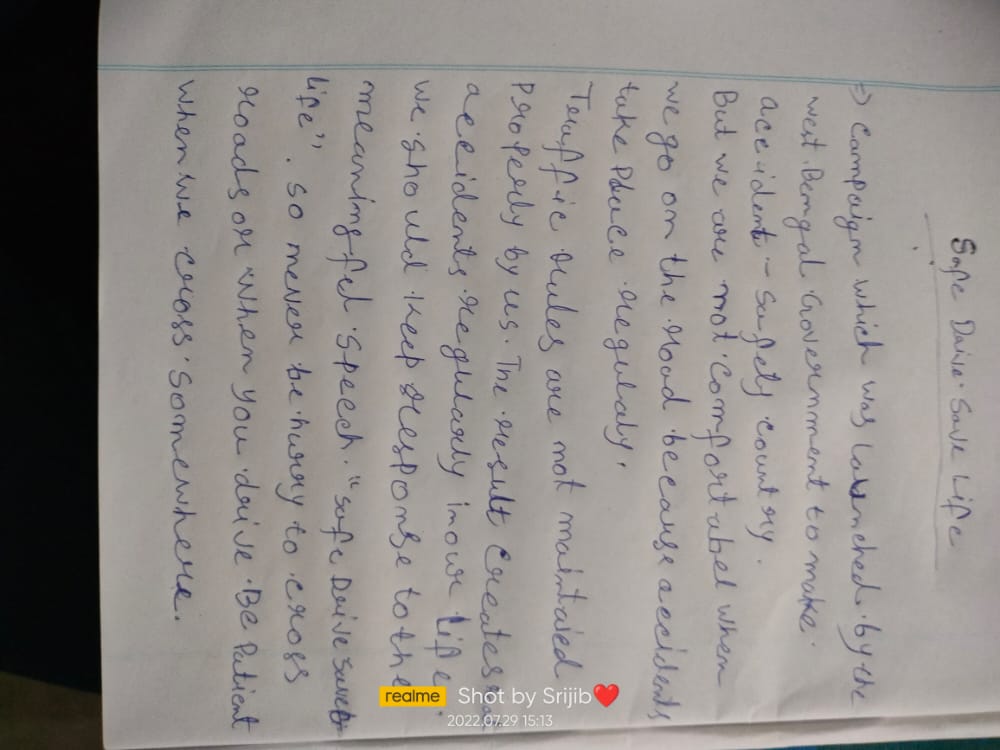 Safe Drive Save Life
=> Campaign which was launched by the
west Bengal Government to make
accident - safety country.
But we are not comfortabel when
we go on the road because accidents
take place regularly.
Traffic rules are not maintained
properly by us. The result creates
accidents regularly in our life.
we should keep response to the
meaningful speech. "safe Drive save
life". so never be hurry to cross
roads or when you drive. Be patient
when we cross somewhere.
realme Shot by Srijib❤️
2022.07.29 15:13